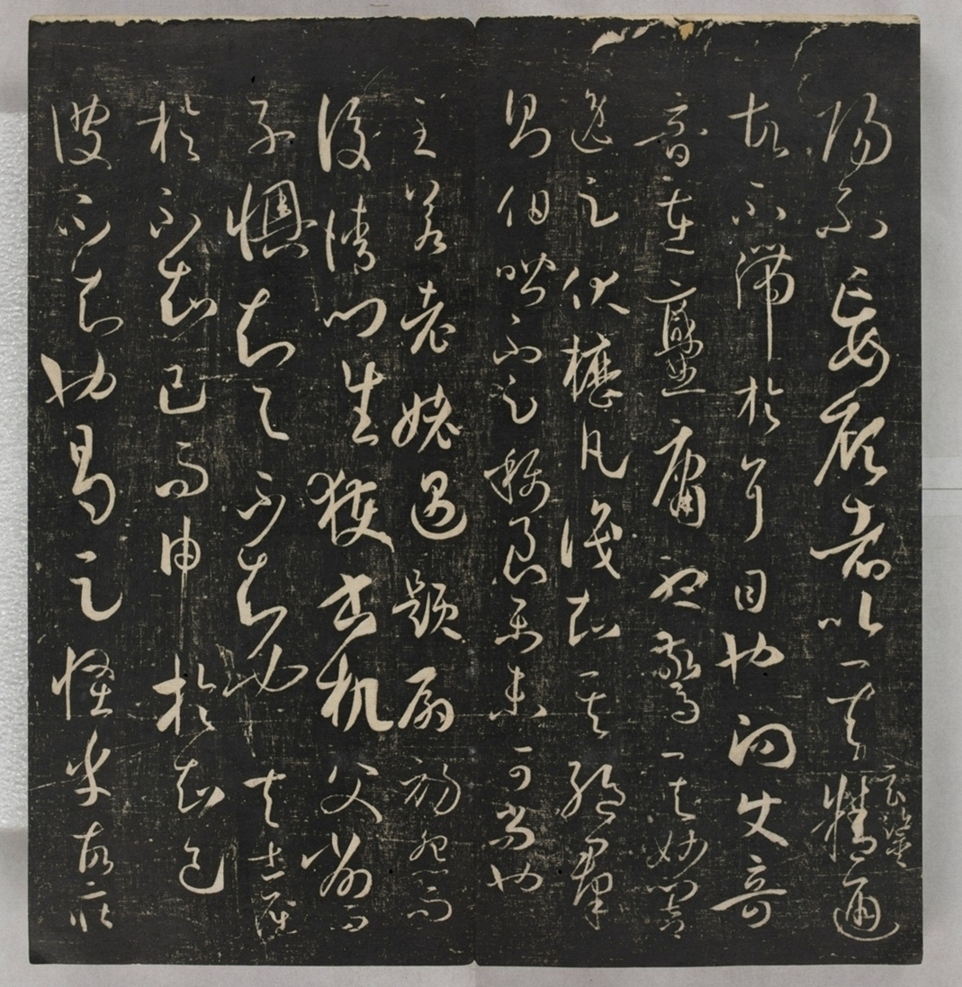 陽不妄顧者以其玄鑒精通
故不滯於耳目也向使奇
音在爨庸聽驚其妙響
逸足伏櫪凡識知其絕群
則伯喈不足稱良樂未可尚也
至若老姥遇題扇初怨而
後請門生獲書机父削而
子懊知與不知也夫士屈
於不知己而申於知己
彼不知也曷足怪乎故莊